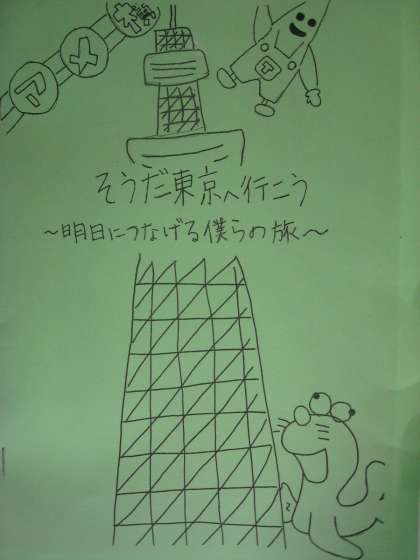 アメ横
そうだ東京へ行こう
～明日につなげる僕らの旅～